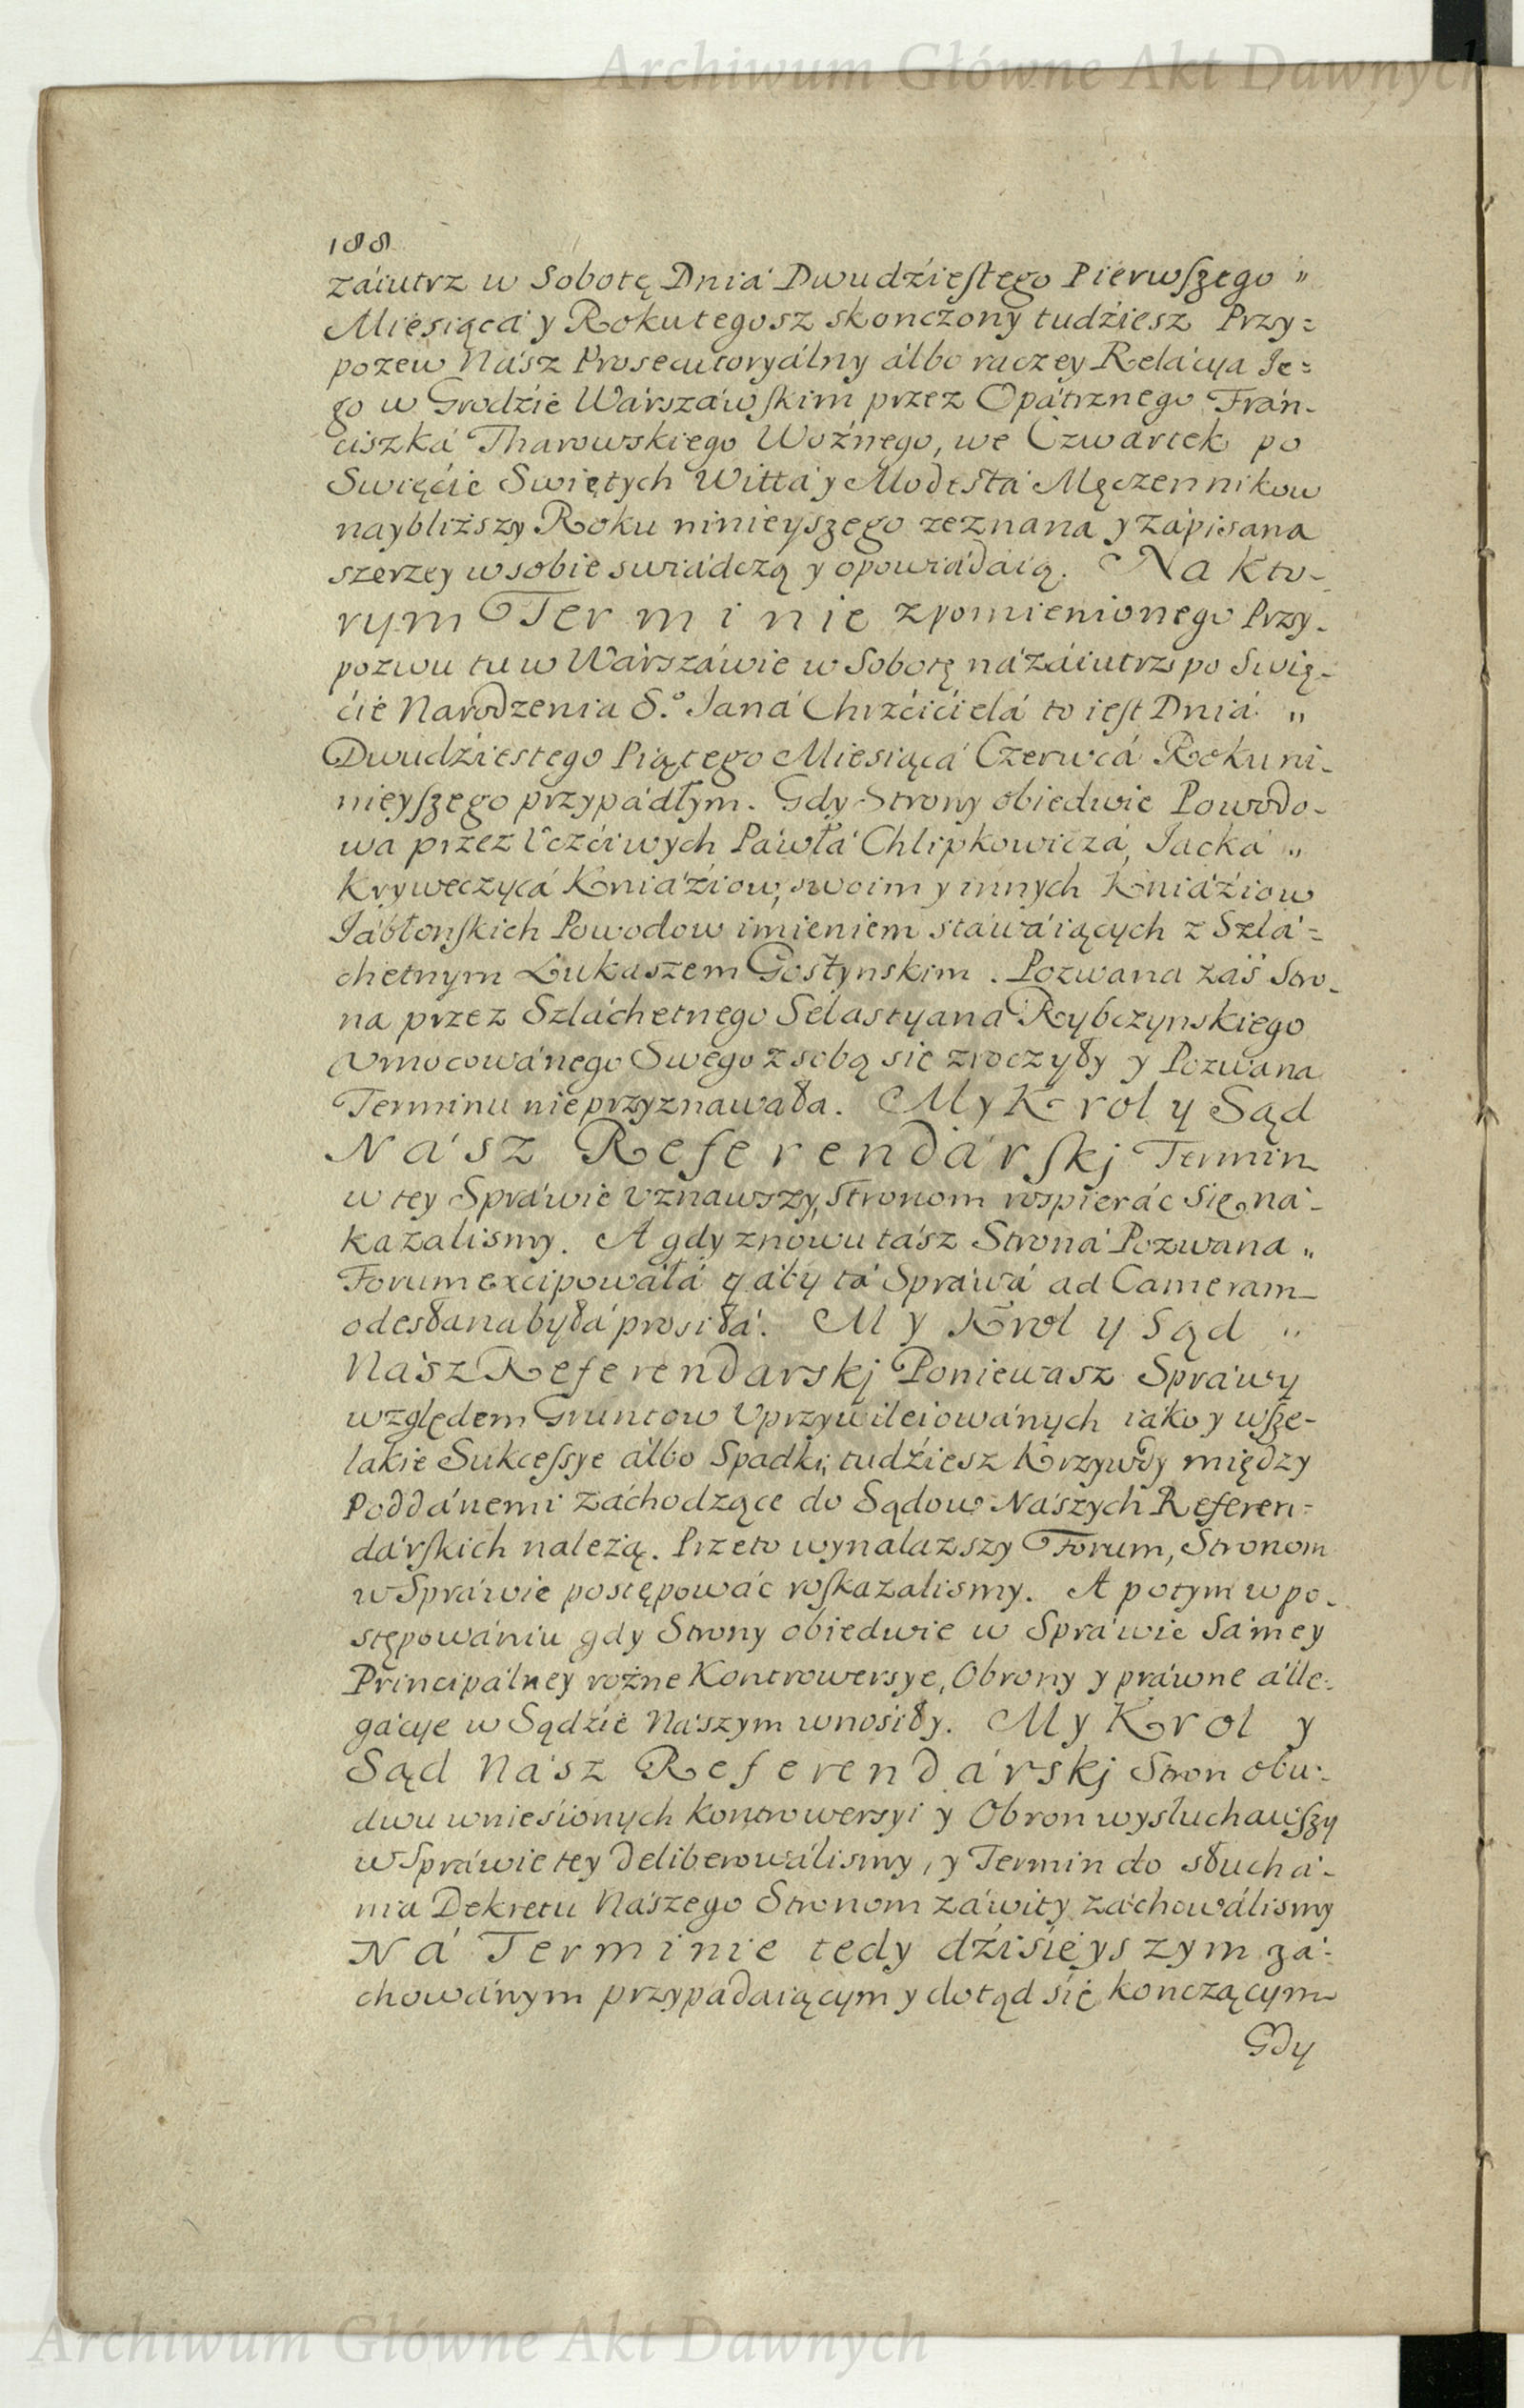 Archiwum Główne Akt Dawnych
188
záiutrz w Sobotę Dniá Dwudźiestego Pierwszego "
Miesiącá y Roku tegosz skonczony tudźiesz Przy=
pozew Nász Prosecutoryálny álbo raczey Relácya Ie=
go w Grodźie Wárszáwskim przez Opátrznego Frán-
ciszká Tharowskiego Woźnego, we Czwartek po
Swięćie Swiętych Wittá y Modestá Męczennikow
naybliższy Roku ninieyszego zeznana y zápisana
szerzey w sobie swiádczą y opowiádáią. Na kto-
rym Terminie zpomienionego Przy-
pozwu tu w Wárszáwie w Sobotę názáiutrz po Swię-
ćie Narodzenia S.º Janá Chrzćićielá to iest Dniá "
Dwudźiestego Piątego Miesiącá Czerwcá Roku ni-
nieyszego przypádłym. Gdy Strony obiedwie Powodo-
wa przez Uczćiwych Páwłá Chlipkowiczá, Jacká "
Kryweczycá Kniáźiow, swoim y innych Kniáźiow
Jábłonskich Powodow imieniem stáwáiących z Szlá=
chetnym Łukaszem Gostynskim. Pozwana záś Stro-
na przez Szláchetnego Sebastyana Rybczynskiego
Vmocowánego Swego z sobą się zroczyły y Pozwana
Terminu nie przyznawała. My Krol y Sąd
Nász Referendárski Termin
w tey Spráwie vznawszy, Stronom wspieráć się ná-
kazalismy. A gdy znowu tász Stroná Pozwana "
Forum excipowáłá y áby tá Spráwá ad Cameram
odesłana byłá prosiłá. My Krol y Sąd "
Nász Referendarski Poniewasz Spráwy
względem Gruntow Vprzywileiowánych iáko y wsze-
lakie Sukcessye álbo Spadki, tudźiesz Krzywdy między
Poddánemi záchodzące do Sądow Nászych Referen=
dárskich należą. Przeto wynalazszy Forum, Stronom
w Spráwie postępowáć roskazalismy. A potym w po-
stępowániu gdy Strony obiedwie w Spráwie Sámey
Principálney rożne Kontrowersye, Obrony y práwne álle-
gácye w Sądźie Nászym wnosiły. My Krol y
Sąd Nász Referendárski Stron obu-
dwu wniesionych kontrowersyi y Obron wysłuchawszy
w Spráwie tey deliberowálismy, y Termin do słuchá-
nia Dekretu Nászego Stronom záwity záchowálismy
Ná Terminie tedy dźisieyszym zá-
chowánym przypadaiącym y dotąd się kończącym
Gdy
Archiwum Główne Akt Dawnych